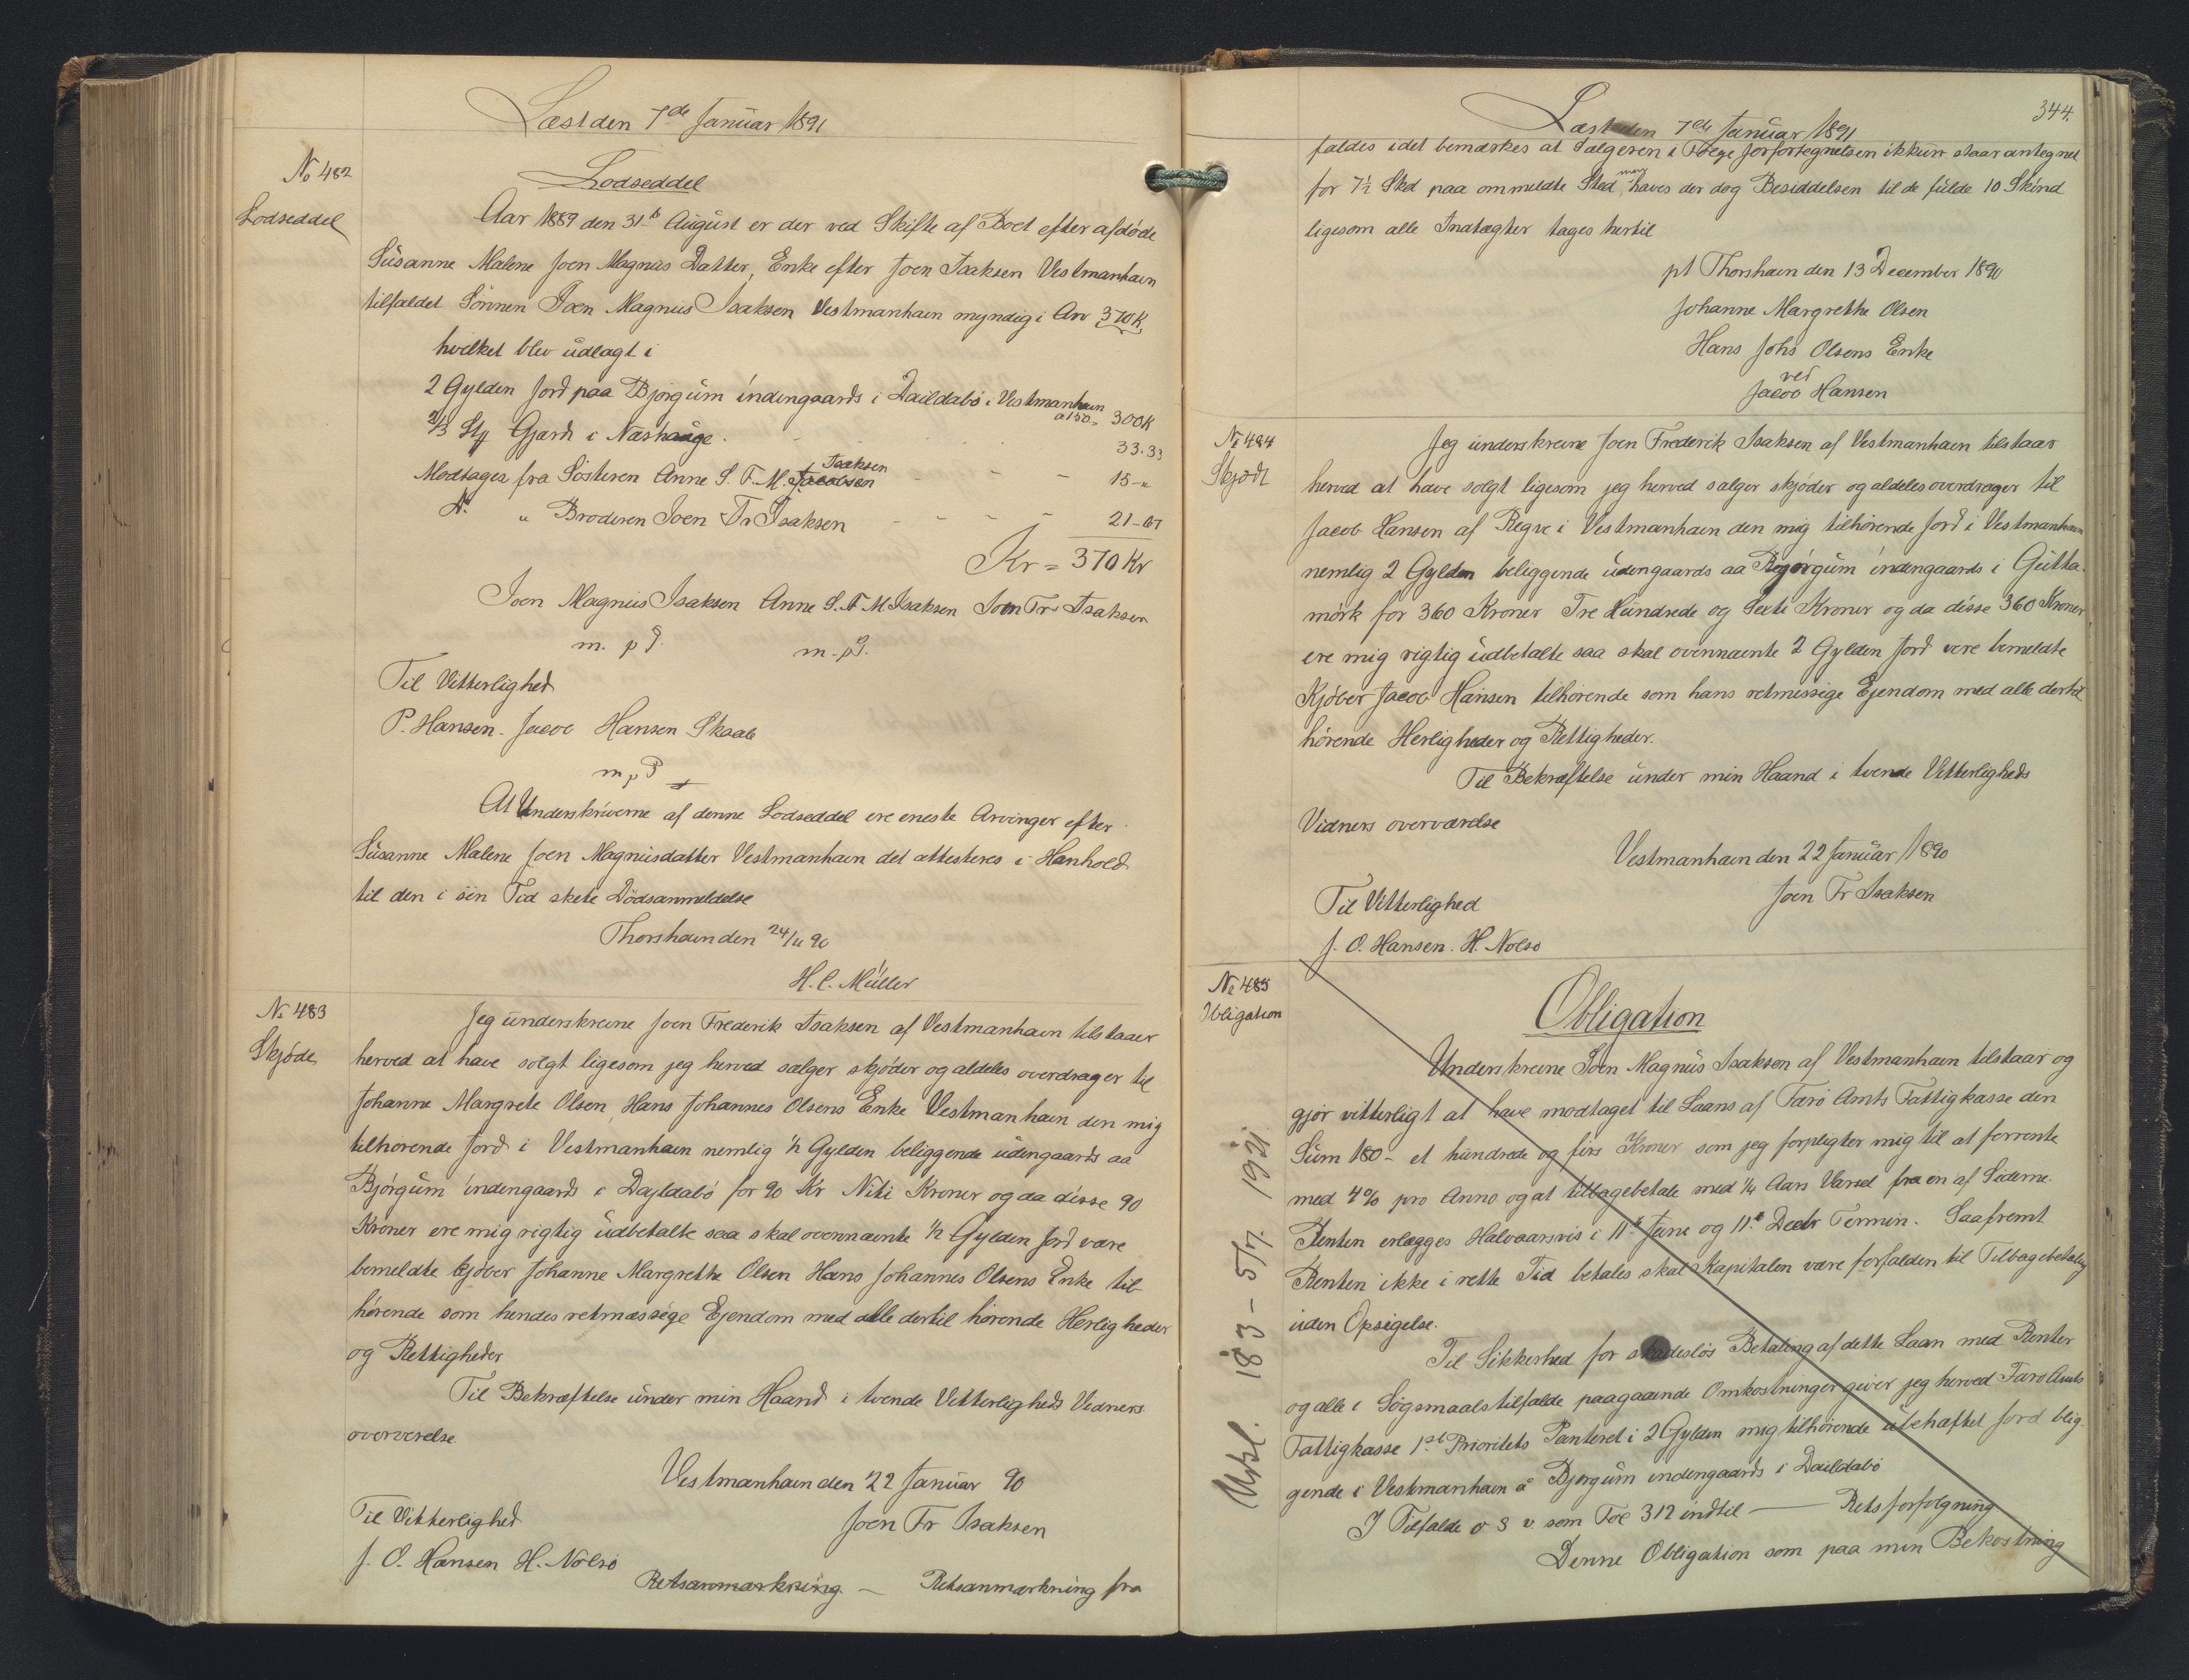 Læst den 7de Januar 1891
No 482
Lodseddel
Lodseddel
Aar 1889 den 31te August er der ved Skifte af Boet efter afdøde
Susanne Malene Joen Magnus Datter, Enke efter Joen Isaksen Vestmanhavn
tilfaldet Sønnen Joen Magnus Isaksen Vestmanhavn myndig i Arv 370 K,
hvilket blev udlagt i
2 Gylden Jord paa Bjørgum indengaards i Daildabø i Vestmanhavn
a 150,, 300 K
2/3 Stp Gjærdi i Næshauge. 33.33
Modtages fra Søsteren Anne S. F. M. Jacobsen Isaksen 15 -"
Do. " Broderen Joen Fr Isaksen 21-67
Kr = 370 Kr
Joen Magnus Isaksen Anne S. F M Isaksen Joen Fr Isaksen
m. p P. m. p P.
Til Vitterlighed
P. Hansen. Jacob Hansen Skaale
m p P
At Underskriverne af denne Lodseddel ere eneste Arvinger efter
Susanne Malene Joen Magnusdatter Vestmanhavn det attesteres i Hanhold
til den i sin Tid skete Dödsanmeldelse
Thorshavn den 24/11 90
H. C. Müller
No 483
Skjøde
Jeg underskrevne Joen Frederik Isaksen af Vestmanhavn tilstaaer
herved at have solgt ligesom jeg herved sælger skjøder og aldeles overdrager til
Johanne Margrete Olsen, Hans Johannes Olsens Enke Vestmanhavn den mig
tilhørende Jord i Vestmanhavn nemlig ½ Gylden beliggende udengaards aa
Bjørgum indengaards i Dajldabø for 90 Kr Niti Kroner og da disse 90
Kroner ere mig rigtig udbetalte saa skal ovennævnte ½ Gylden Jord være
bemeldte Kjøber Johanne Margrethe Olsen Hans Johannes Olsens Enke til-
hørende som hendes retmæssige Ejendom med alle dertil hørende Herligheder
og Rettigheder
Til Bekræftelse under min Haand i tvende Vitterligheds Vidners
oververelse.
Vestmanhavn den 22 Januar 90
Til Vitterlighed
Joen Fr Isaksen
J. O. Hansen H. Nolsø
Retsanmærkning. — Retsanmærkning fra
344.
Læst den 7de Januar 1891
faldes idet bemærkes at Sælgeren i ikkun staar antegnet
for 7½ Skd paa ommeldte Sted men haves der dog Besiddelsen til de fulde 10 Skind
ligesom alle Indtægter tages hertil
pt Thorshavn den 13 December 1890
Johanne Margrethe Olsen
Hans Johs Olsens Enke
ved
Jacob Hansen
No 484
Skjødt
Jeg underskrevne Joen Frederik Isaksen af Vestmanhavn tilstaar
herved at have solgt ligesom jeg herved sælger skjøder og aldeles overdrager til
Jacob Hansen af Regve i Vestmanhavn den mig tilhørende Jord i Vestmanhavn
nemlig 2 Gylden beliggende udengaards aa Bjørgum indengaards i Gutta-
mørk for 360 Kroner Tre Hundrede og Sexti Kroner og da disse 360 Kroner
ere mig rigtig udbetalte saa skal ovennævnte 2 Gylden Jord vere bemeldte
Kjøber Jacob Hansen tilhørende som hans retmessige Ejendom med alle dertil
hørende Herligheder og Rettigheder.
Til Bekræftelse under min Haand i tvende Vitterligheds
Vidners overværelse
Vestmanhavn den 22 Januar 1890
Til Vitterlighed
Joen Fr Isaksen
J. O. Hansen. H. Nolsø
No 485
Obligation
Obligation
Underskrevne Joen Magnus Isaksen af Vestmanhavn tilstaar og
gjør vitterligt at have modtaget til Laans af Færø Amts Fattigkasse den
Sum 180- et hundrede og firs Kroner som jeg forpligter mig til at forrente
med 4% pro Anno og at tilbagebetale med ¼ Aars Varsel fra en af Siderne.
Renten erlægges Halvaarsvis i 11te Juni og 11te Decbr Termin. Saafremt
Renten ikke i rette Tid betales skal Kapitalen være forfalden til Tilbagebetaling
uden Opsigelse.
Til Sikkerhed for skadesløs Betaling af dette Laan med Renter
og alle i Søgsmaalstilfælde paagaaende Omkostninger giver jeg herved Færø Amts
Fattigkasse 1ste Prioritets Panteret i 2 Gylden mig tilhørende ubehæftet Jord belig-
gende i Vestmanhavn å Bjørgum indengaards i Daildabø
I Tilfælde o s v. som Fol 312 indtil — Retsforfølgning
Denne Obligation som paa min Bekostning
Udsl. 183 - 5/7. 1921